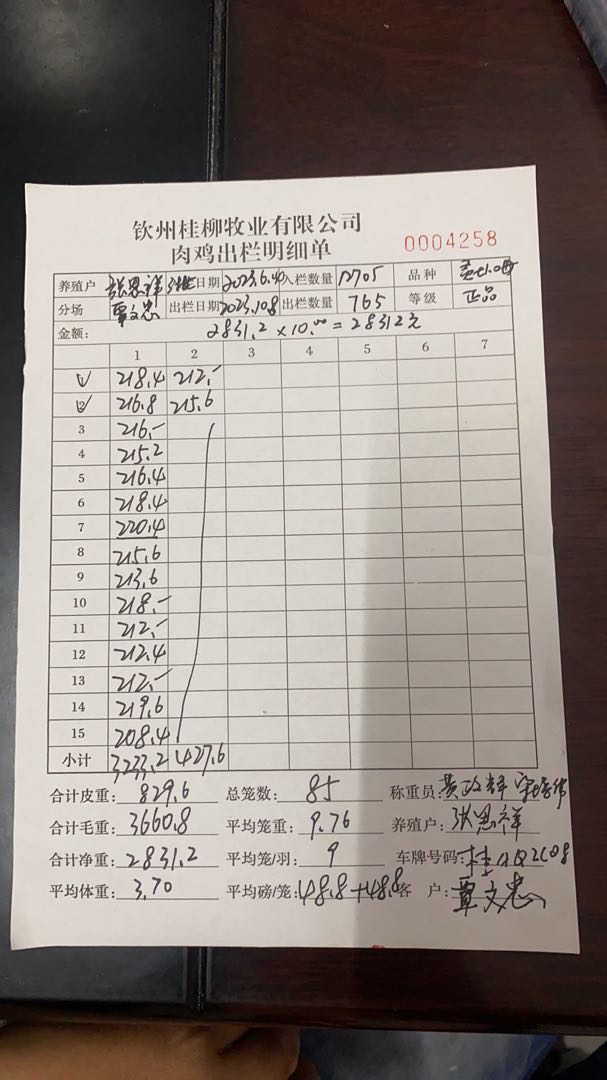 钦州桂柳牧业有限公司
肉鸡出栏明细单
0004258
养殖户 张思祥 日期 2023.6.40 入栏数量 12705 品种
分场 覃文忠 出栏日期 2023.10.8 出栏数量 765 等级 正品
金额: 2831.2 × 10.00 = 28312元
1 2 3 4 5 6 7
1 218.4 212.-
2 216.8 215.6
3 216.-
4 215.2
5 216.4
6 218.4
7 220.4
8 215.6
9 213.6
10 218.-
11 212.-
12 212.4
13 212.-
14 219.6
15 208.4
小计 3233.2 427.6
合计皮重: 829.6 总笼数: 85 称重员: 黄政辉
合计毛重: 3660.8 平均笼重: 9.76 养殖户: 张思祥
合计净重: 2831.2 平均笼/羽: 9 车牌号码:
平均体重: 3.70 平均磅/笼: 48.8+48.8 客 户: 覃文忠